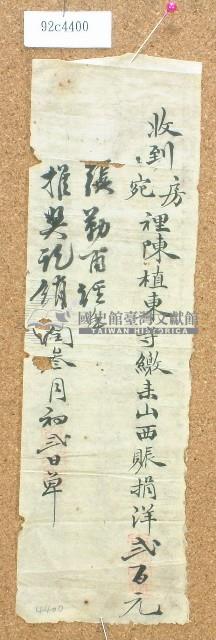 92c4400
收到
宛房
裡陳植東等繳來山西賑捐洋貳百元
張勤甫經手
推興託銷 閏叁月初貳日單
國史館臺灣文獻館
TAIWAN HISTORICA
4400